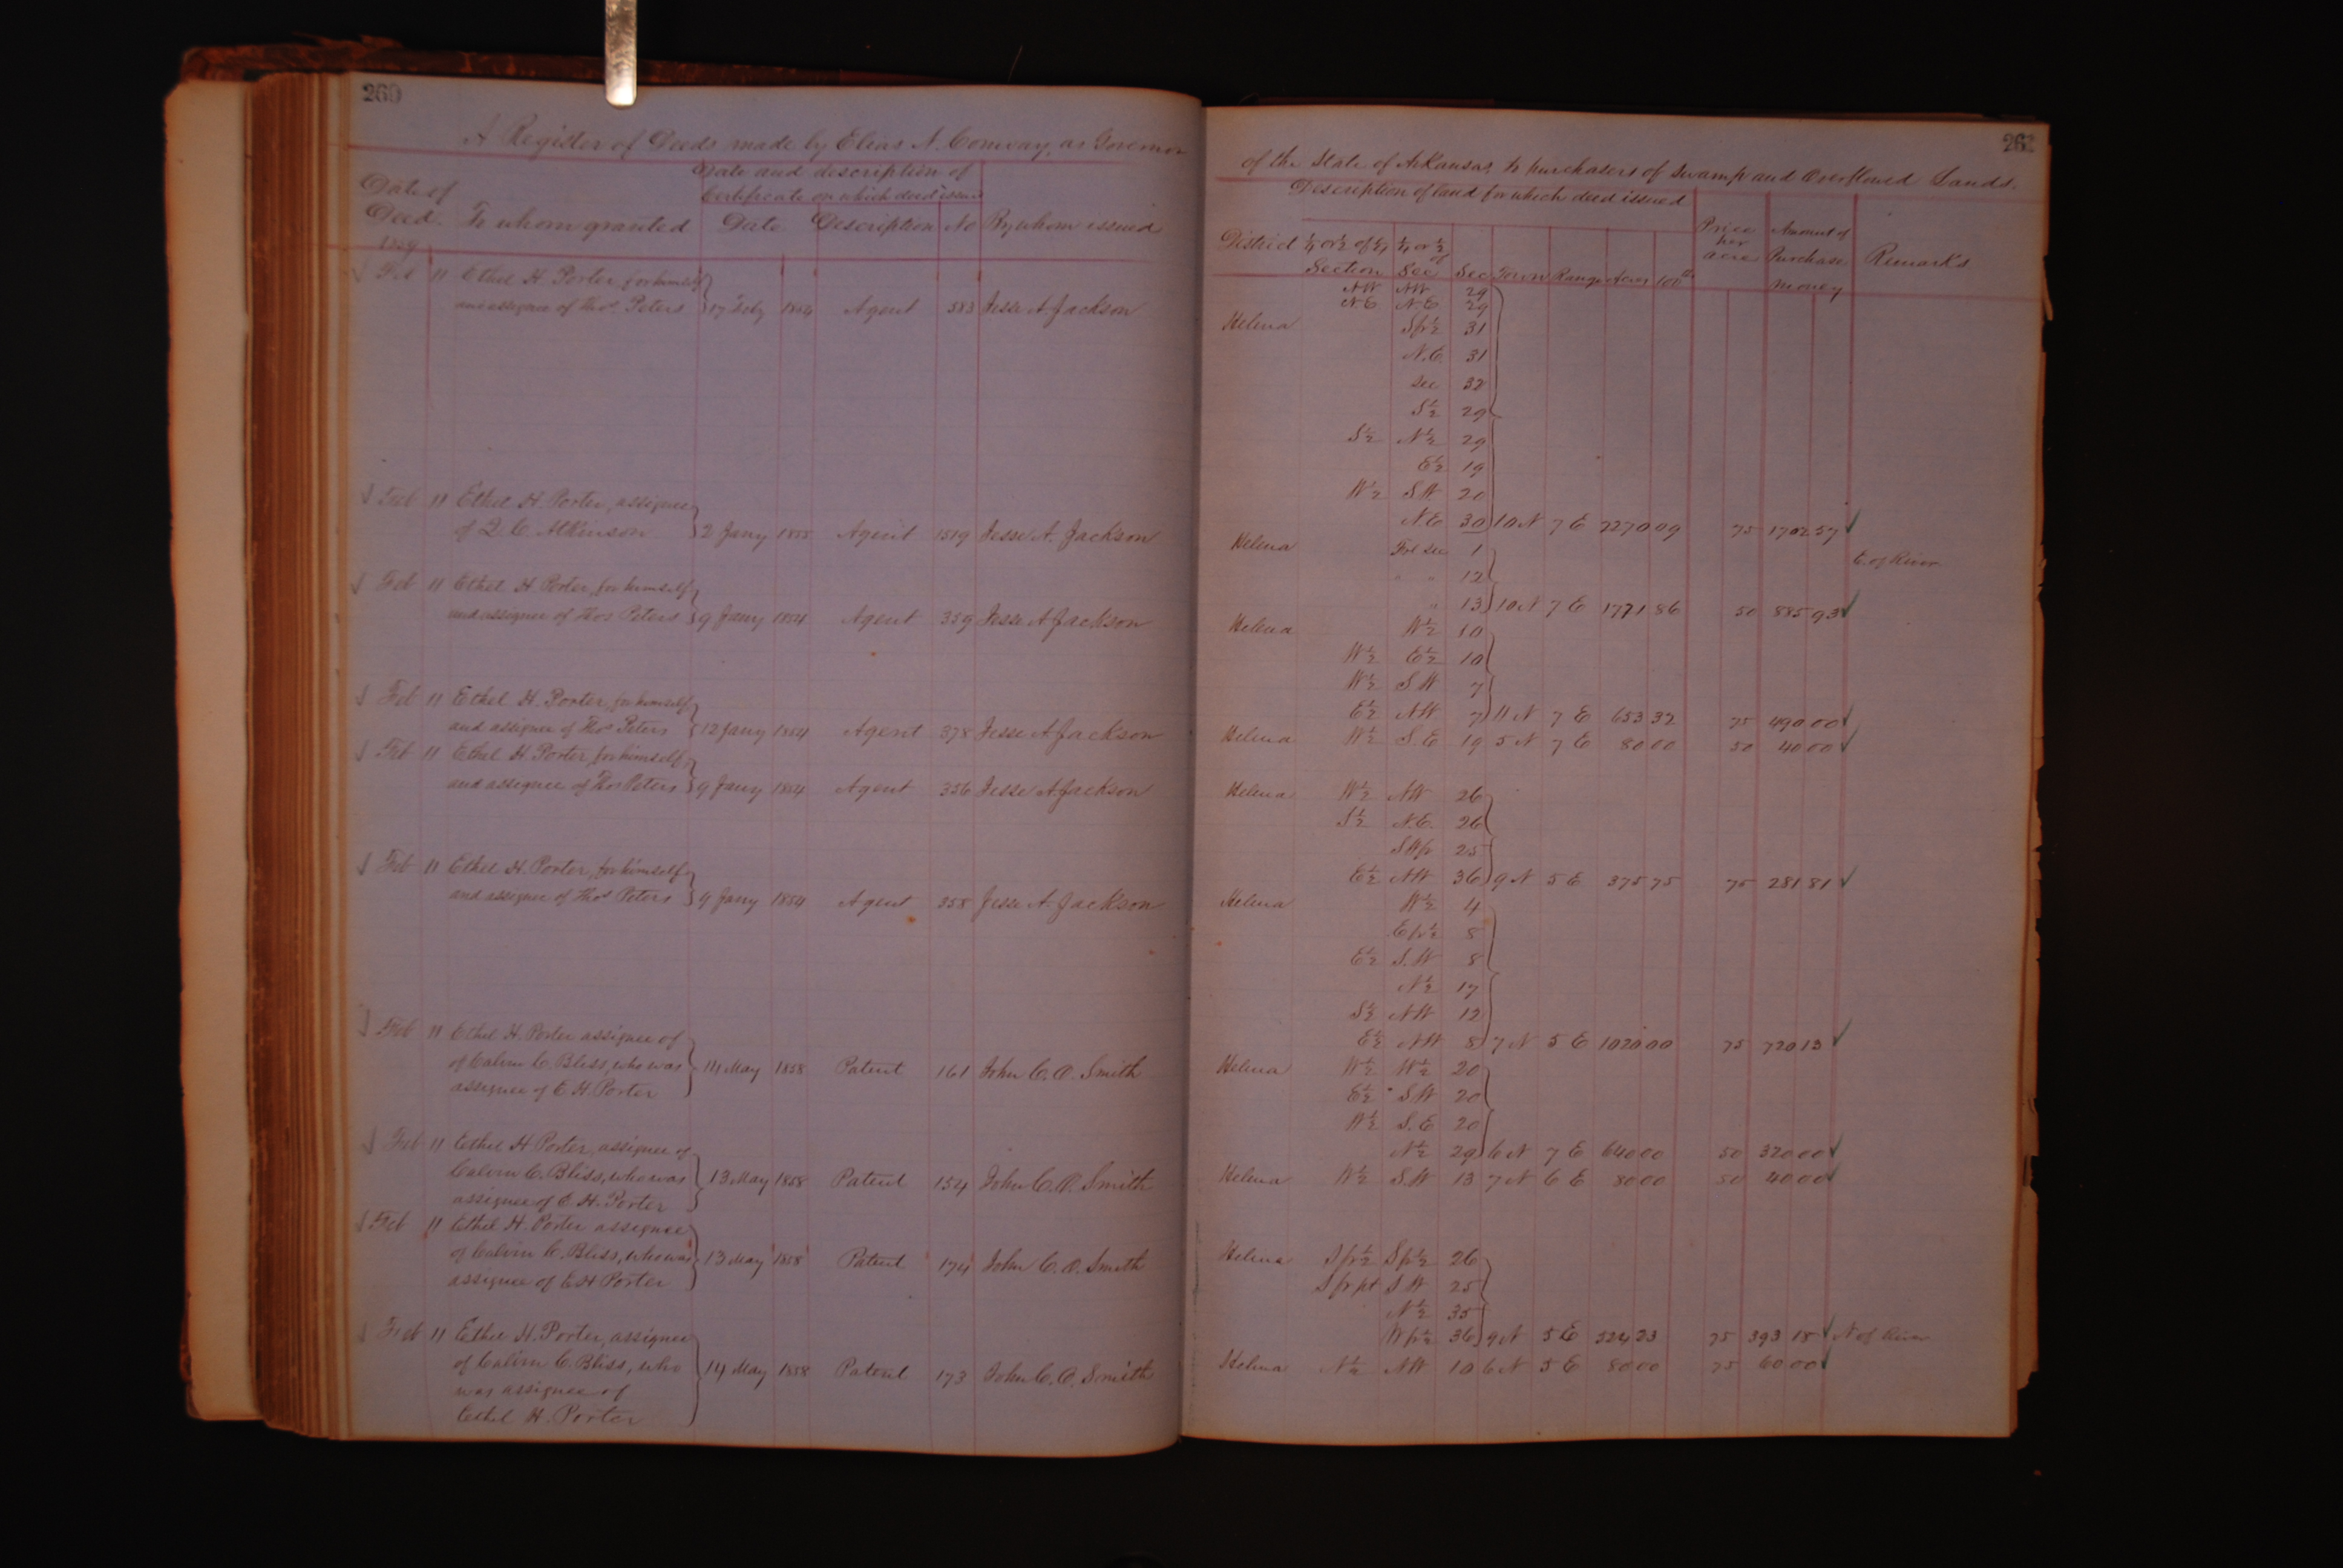 260
A Register of Deeds made by Elias N. Conway, as Governor
Date of Deed. To whom granted
Date and description of Certificate on which deed issued
Date Description No By whom issued
1859
Feb 11 Ethel H. Porter, for himself
and assignee of Thos Peters 17 Feby 1854 Agent 583 Jesse A Jackson
Feb 11 Ethel H. Porter, assignee
of Q. C. Atkinson 2 Jany 1855 Agent 1519 Jesse A. Jackson
Feb 11 Ethel H. Porter, for himself
and assignee of Thos Peters 9 Jany 1854 Agent 359 Jesse A Jackson
Feb 11 Ethel H. Porter, for himself
and assignee of Thos Peters 12 Jany 1854 Agent 378 Jesse A Jackson
Feb 11 Ethel H. Porter, for himself
and assignee of Thos Peters 9 Jany 1854 Agent 356 Jesse A Jackson
Feb 11 Ethel H. Porter, for himself
and assignee of Thos Peters 9 Jany 1854 Agent 358 Jesse A Jackson
Feb 11 Ethel H. Porter assignee of
of Calvin C. Bliss, who was 14 May 1858 Patent 161 John C. O. Smith
assignee of E. H. Porter
Feb 11 Ethel H Porter, assignee of
Calvin C. Bliss, who was 13 May 1858 Patent 154 John C. O. Smith
assignee of E H. Porter
Feb 11 Ethel H. Porter assignee
of Calvin C. Bliss, who was 13 May 1858 Patent 174 John C. O. Smith
assignee of E H Porter
Feb 11 Ethel H. Porter, assignee
of Calvin C. Bliss, who 14 May 1858 Patent 173 John C. O. Smith
was assignee of
Ethel H. Porter
of the State of Arkansas, to purchasers of Swamp and Overflowed Lands.
Description of land for which deed issued
District ¼ or ½ of ¼ Section ¼ or ½ of Sec Sec Town Range Acres 100th Price per acre Amount of Purchase money Remarks
NW NW 29
NE N.E 29
Helena S fr ½ 31
N.E. 31
Sec 32
S½ 29
S½ N½ 29
E½ 19
W½ S.W 20
N.E 30 10 N 7 E 2270 09 75 1702 57
Helena Frl sec 1 E. of River
" " 12
" 13 10 N 7 E 1771 86 50 885 93
Helena W½ 10
W½ E½ 10
W½ S.W 7
E½ NW 7 11 N 7 E 653 32 75 490 00
Helena W½ S.E 19 5 N 7 E 80 00 50 40 00
Helena W½ NW 26
S½ N.E. 26
SW fr 25
E½ NW 36 9 N 5 E 375 75 75 281 81
Helena W½ 4
E fr ½ 8
E½ S.W 8
N½ 17
S½ NW 12
E½ NW 8 7 N 5 E 1020 00 75 720 13
Helena W½ W½ 20
E½ S.W 20
W½ S.E 20
N½ 29 6 N 7 E 640 00 50 320 00
Helena W½ S.W 13 7 N 6 E 80 00 50 40 00
Helena S fr ½ S fr ½ 26
S fr pt S W 25
N½ 35
W fr ½ 36 9 N 5 E 524 23 75 393 18 N of River
Helena N½ NW 10 6 N 5 E 80 00 75 60 00